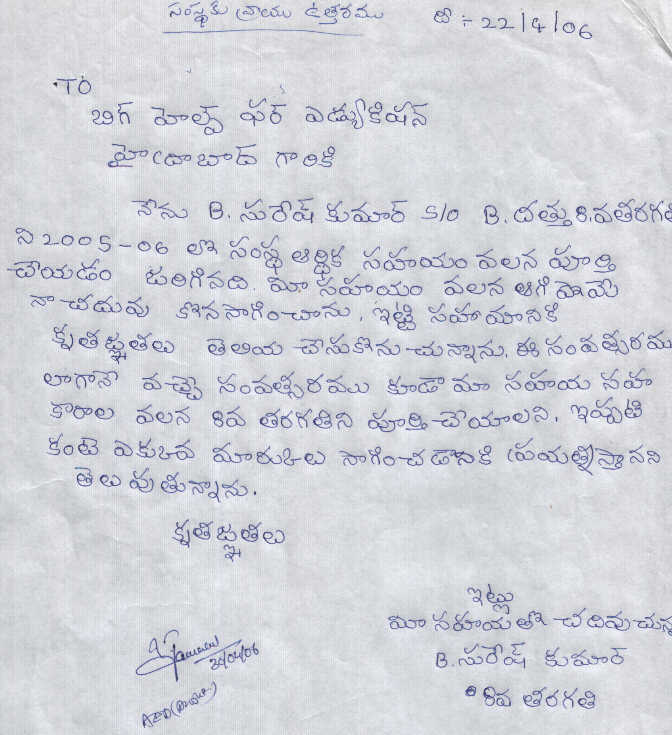 సంస్థకు వ్రాయు ఉత్తరము
తే :- 22/4/06
TO
బిగ్ హెల్ప్ ఫర్ ఎడ్యుకేషన్
హైదాబాద్ గారికి
నేను B. సురేష్ కుమార్ S/O B. దత్తు 8.వతరగతి
ని 2005-06 లొ సంస్థ ఆర్థిక సహయం వలన పూర్తి
చేయడం జరిగినది. మీ సహయం వలన ఆగి పొయే
నా చదువు కొనసాగించాను. ఇట్టి సహయానికి
కృతజ్ఞతలు తెలియ చేసుకొను చున్నాను. ఈ సంవత్సరము
లాగానే వచ్చె సంవత్సరము కూడా మీ సహయ సహ
కారాల వలన 8వ తరగతిని పూర్తి చేయాలని. ఇప్పటి
కంటె ఎకువ మారుకులు సాగించడానికి ప్రయత్నిస్తానని
తెలుపుతున్నాను.
కృతజ్ఞతలు
ఇట్లు
మీ సహయతొ చదివుచున్న
B. సురేష్ కుమార్
8వ తరగతి
24/04/06